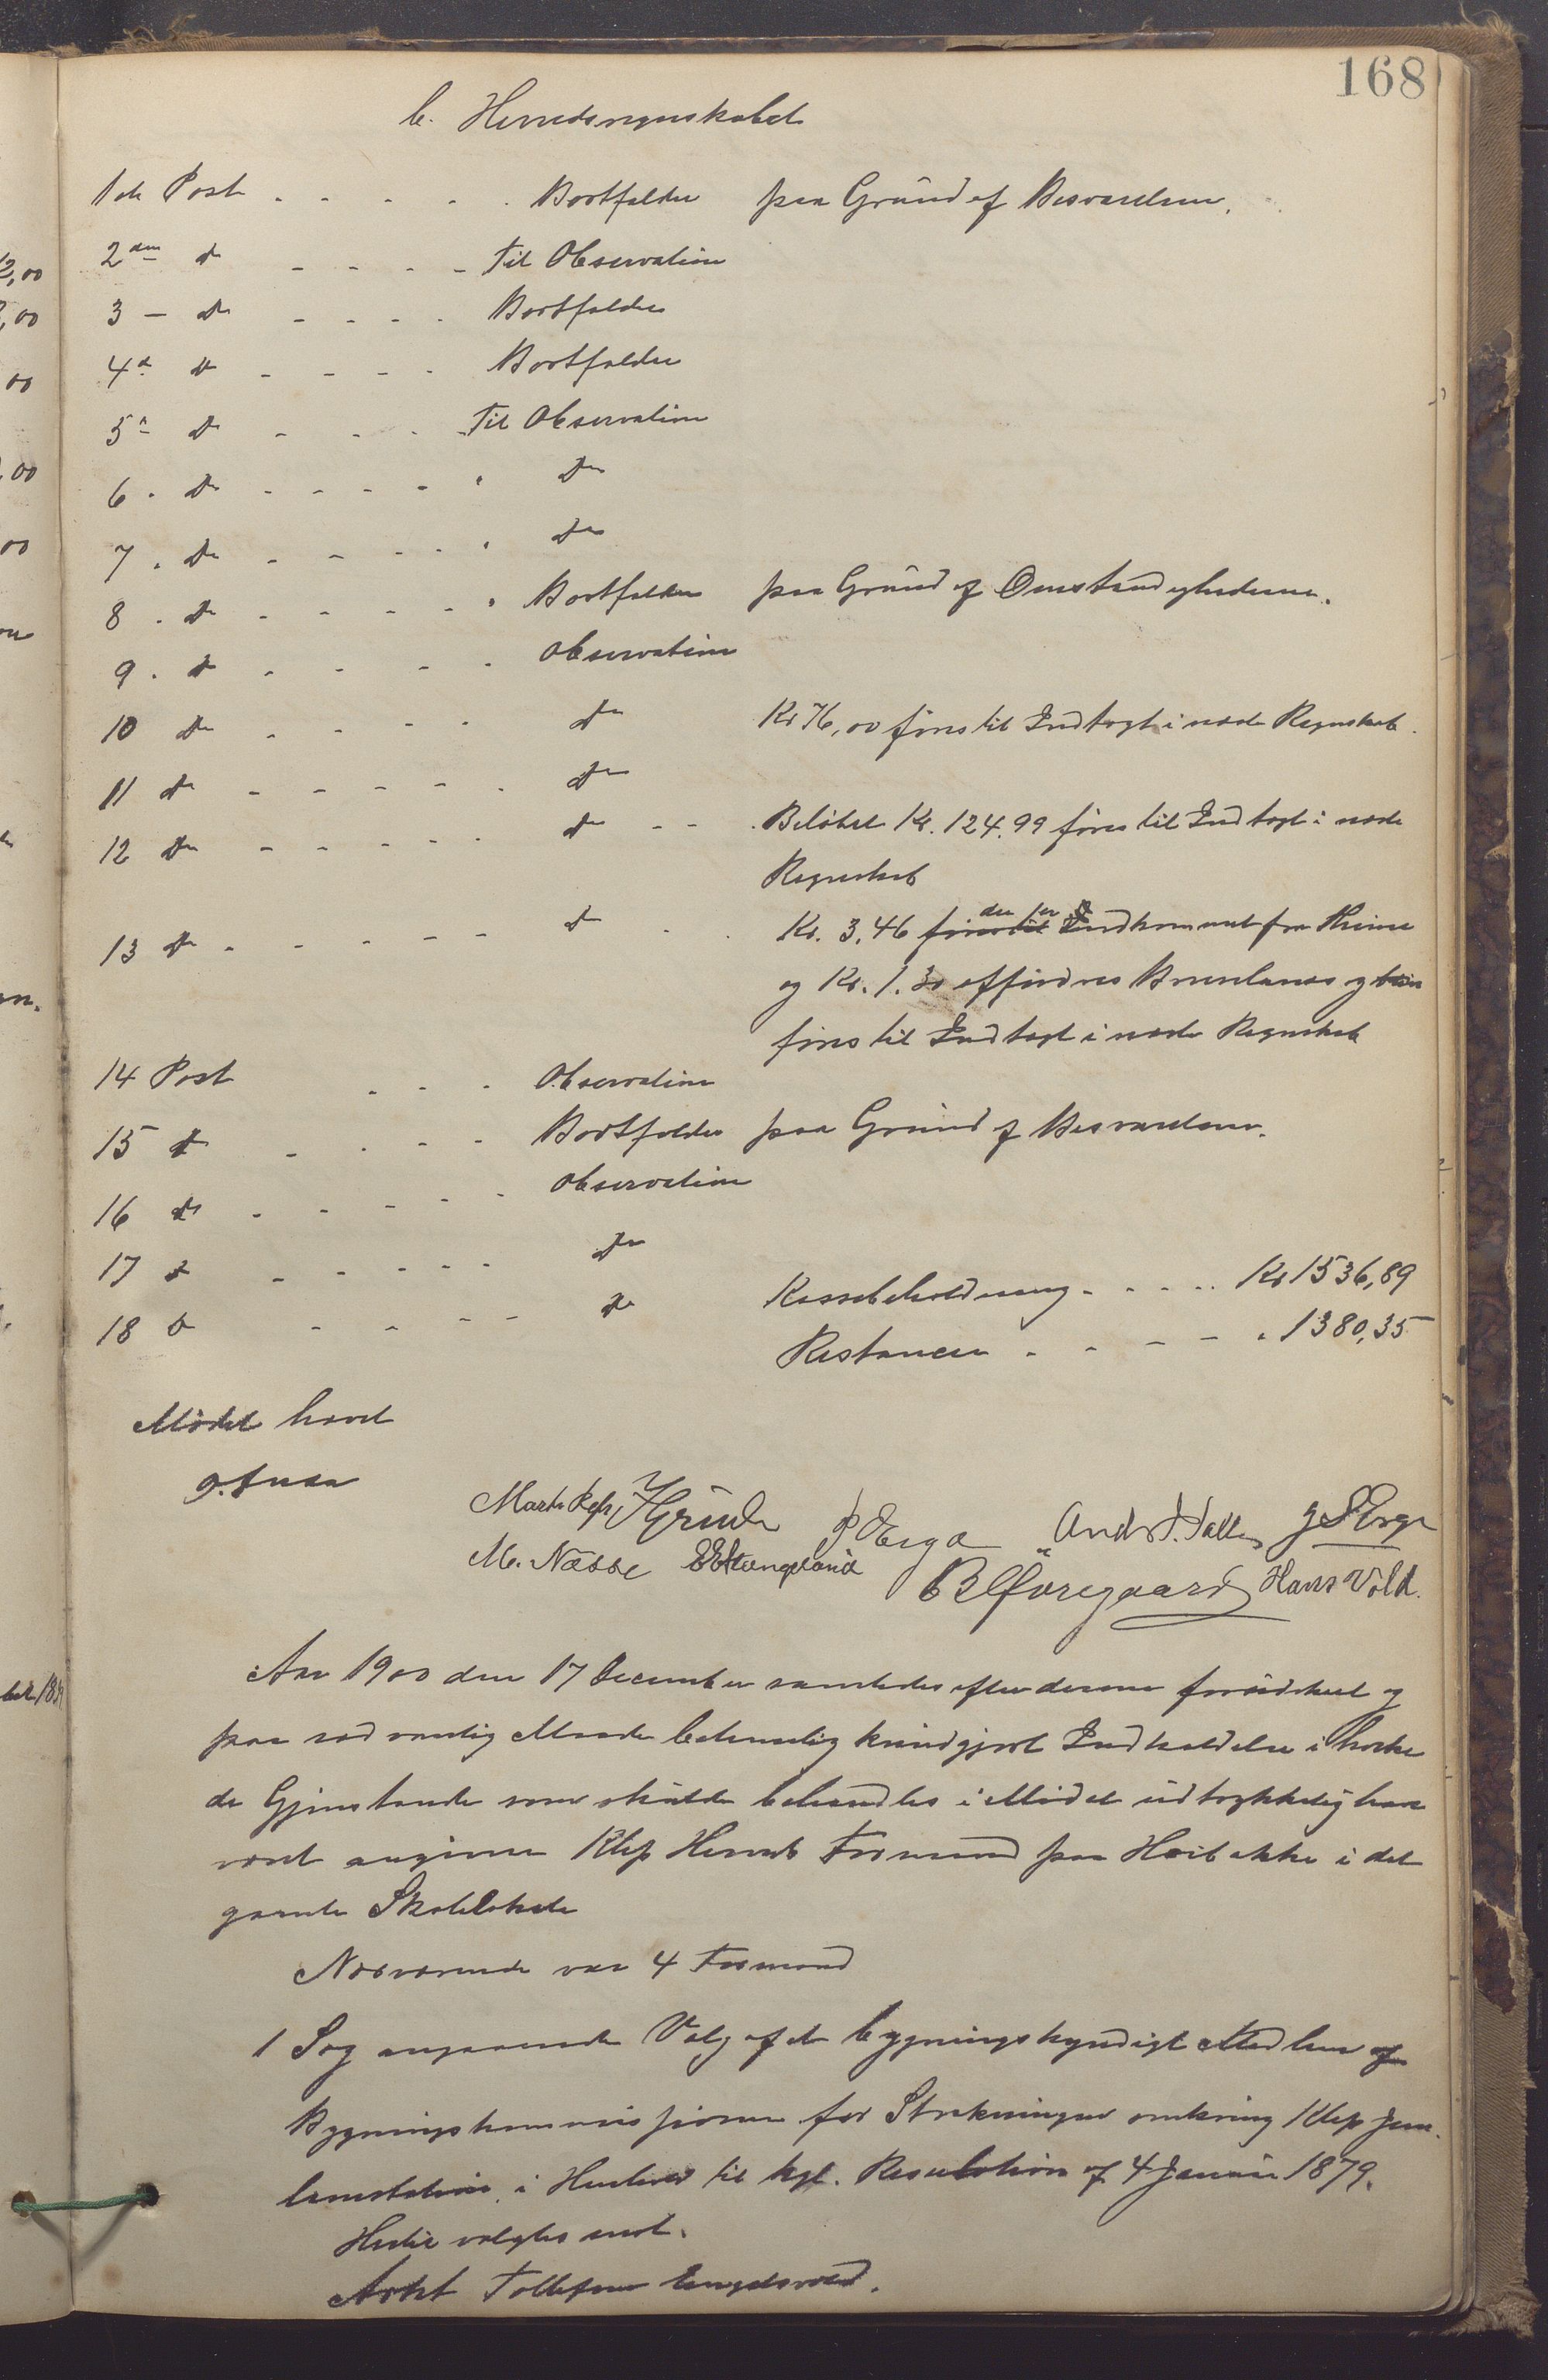 168
b. Herredsregnskabet
1ste Post - - - - - Bortfalder paa Grund af Besvarelsen.
2den do - - - - Til Observation
3 - do - - - - Bortfalder
4de do - - - - Bortfalder
5te do - - - Til Observation
6 . do - - - - - do
7 . do - - - - - do
8 . do - - - - - Bortfalder paa Grund af Omstændighederne.
9 . do - - - - Observation
10 do - - - - do Kr 76,00 føres til Indtægt i næste Regnskab.
11 do - - - - - do
12 do - - - - - do - - . Beløbet Kr. 124.99 føres til Indtægt i næste
Regnskab
13 do - - - - - do - . Kr. 3,46 føres til der er Indkommet fra Thime
og Kr. 1.30 affordres Brunlanes og
føres til Indtægt i næste Regnskab
14 Post - - - Observation
15 do - - - - Bortfalder paa Grund af Besvarelsen.
16 do - - - - - Observation
17 do - - - - - do
Kassebeholdning - - - - Kr 1536,89
18 do - - - - do
Restancer - - - - " 1380,35
Mødet hævet
O. Anda
H Grude P Erga Andr. T. Salte J S Erga
M. Næsse E E Stangeland B Øxregaard Hans Vold.
Aar 1900 den 17 December samledes efter derom forudskeet og
paa sædvanlig Maade betimelig kundgjort Indkaldelse i hvilke
de Gjenstande som skulde behandles i Mødet udtrykkelig have
været angivne Klep Herreds Formænd paa Høibakke i det
gamle Skolelokale
Nærværende var 4 Formænd
1 Sag angaaende Valg af et bygningskyndigt Medlem af
Bygningskommissionen for Strækningen omkring Klep Jern-
banestation, i Henhold til kgl. Resolution af 4 Januar 1879.
Hertil valgtes enst.
Tollefsen Engelsvold.